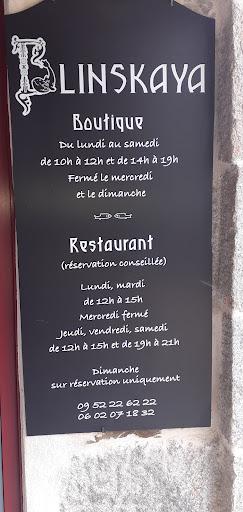 BLINSKAYA
Boutique
Du lundi au samedi
de 10h à 12h et de 14h à 19h
Fermé le mercredi
et le dimanche
Restaurant
(réservation conseillée)
Lundi, mardi
de 12h à 15h
Mercredi fermé
Jeudi, vendredi, samedi
de 12h à 15h et de 19h à 21h
Dimanche
sur réservation uniquement
09 52 22 62 22
06 02 07 18 32